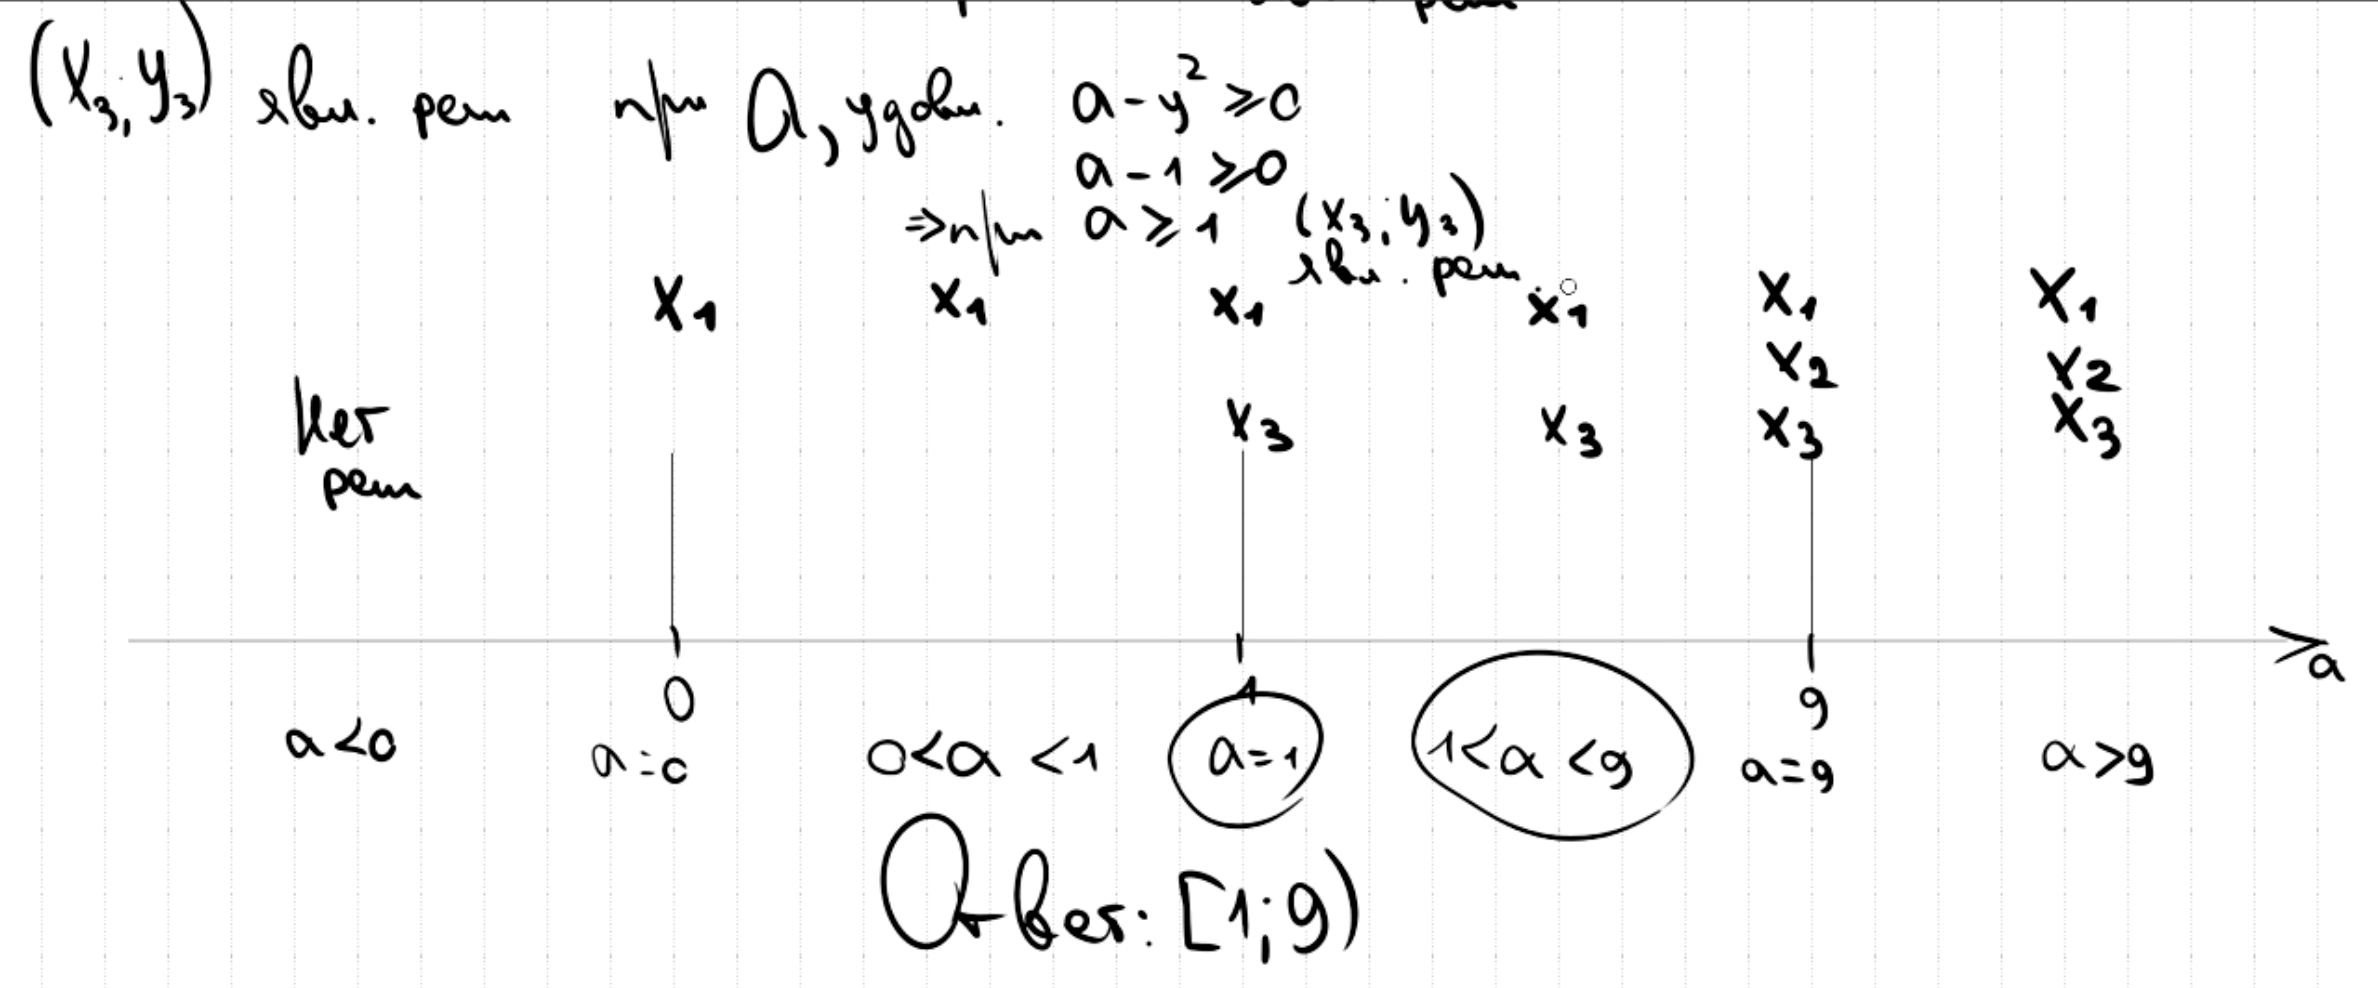 (x₃; y₃) явл. реш при a, удовл. a - y² ≥ 0
a - 1 ≥ 0
⇒ при a ≥ 1 (x₃; y₃)
явл. реш.
x₁ x₁ x₁ x₁ x₁ x₁
x₂ x₂
нет x₃ x₃ x₃ x₃
реш
a
0 1 9
a<0 a=0 0<a<1 a=1 1<a<9 a=9 a>9
Ответ: [1; 9)